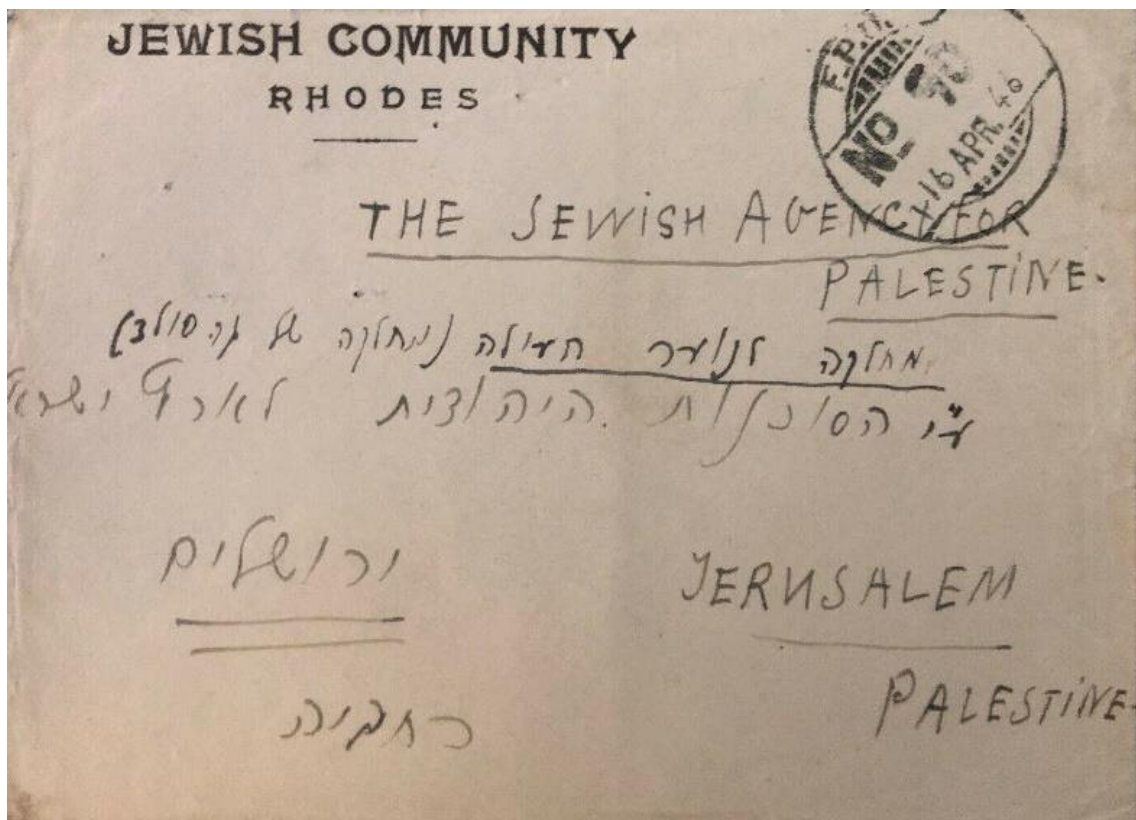 JEWISH COMMUNITY
RHODES
F.P.O.
No
16 APR. 46
THE JEWISH AGENCY FOR
PALESTINE.
מחלקה לנוער העולה (מחלקה של גב. סולד)
ע"י הסוכנות היהודית לארץ ישרא
ירושלים
JERUSALEM
רחביה
PALESTINE-